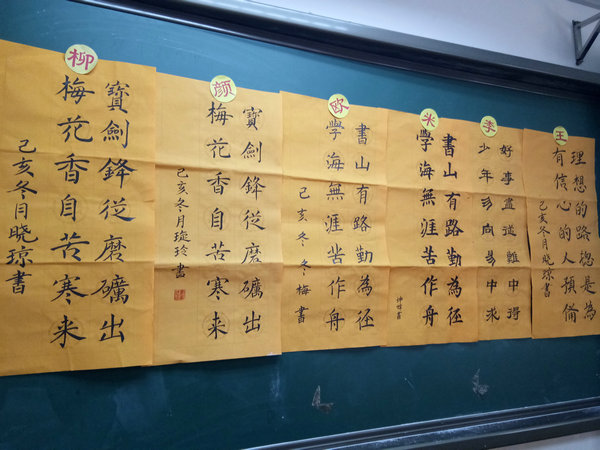 柳
寶劍鋒從磨礪出
梅花香自苦寒来
己亥冬月晓琼書
颜
寶劍鋒從磨礪出
梅花香自苦寒来
己亥冬月璇玲書
欧
書山有路勤為徑
學海無涯苦作舟
己亥冬冬梅書
米
書山有路勤為徑
學海無涯苦作舟
李
好事盡從難中得
少年 向易中求
王
理想的路總是為
有信心的人預備
己亥冬月晓琼書